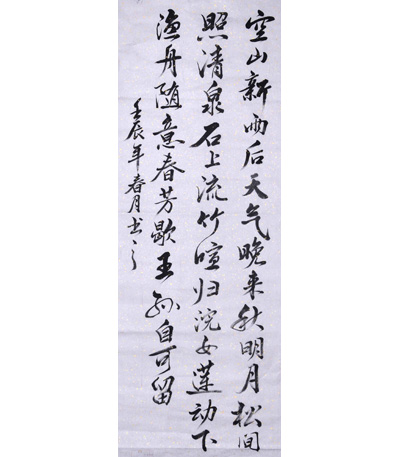 空山新雨后天气晚来秋明月松间
照清泉石上流竹喧归浣女莲动下
渔舟随意春芳歇王孙自可留
壬辰年春月书之